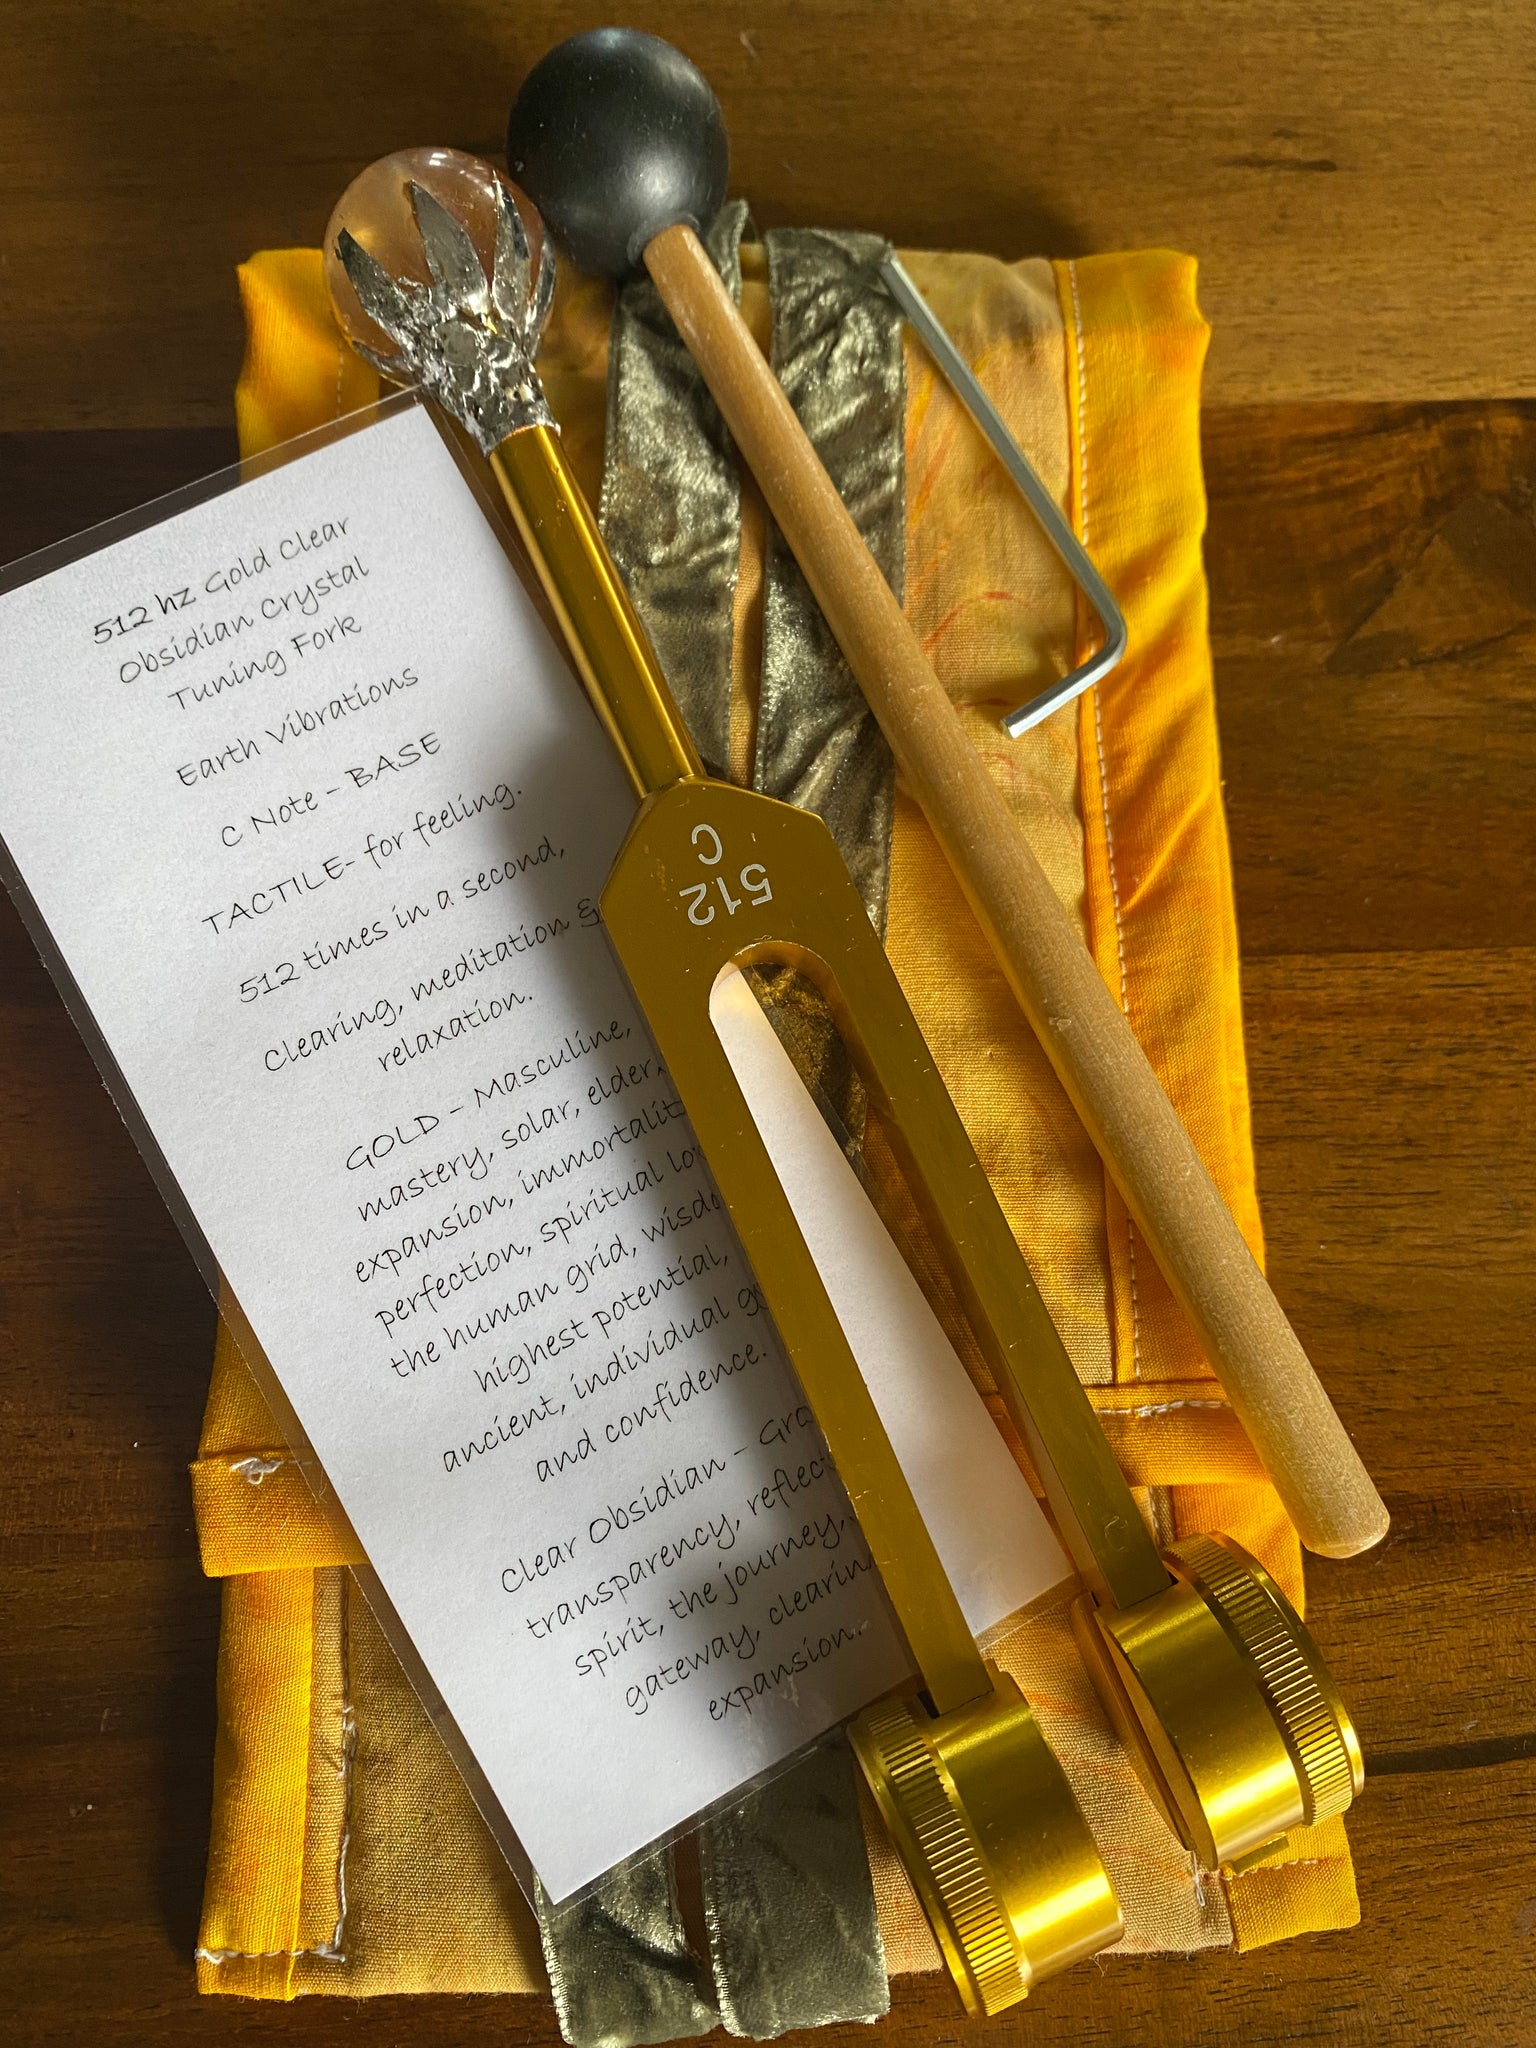 512 hz Gold Clear
Obsidian Crystal
Tuning Fork
Earth Vibrations
C Note - BASE
TACTILE- for feeling.
512 times in a second,
Clearing, meditation &
relaxation.
GOLD - Masculine,
mastery, solar, elder,
expansion,
perfection, spiritual
the human grid,
highest potential,
ancient, individual
and confidence.
Clear Obsidian -
transparency,
spirit, the journey,
gateway,
expansion.
C
512